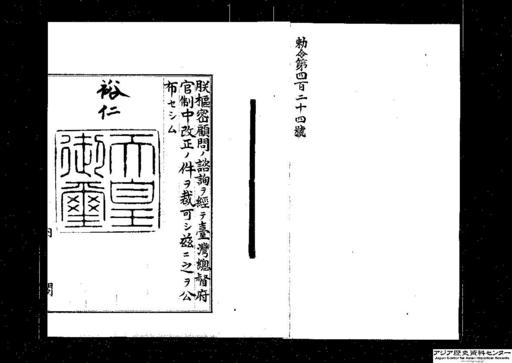 勅令第四百二十四號
朕樞密顧問ノ諮詢ヲ經テ臺灣總督府
官制中改正ノ件ヲ裁可シ玆ニ之ヲ公
布セシム
裕仁
天皇
御璽
内
閣
アジア歴史資料センター
Japan Center for Asian Historical Records